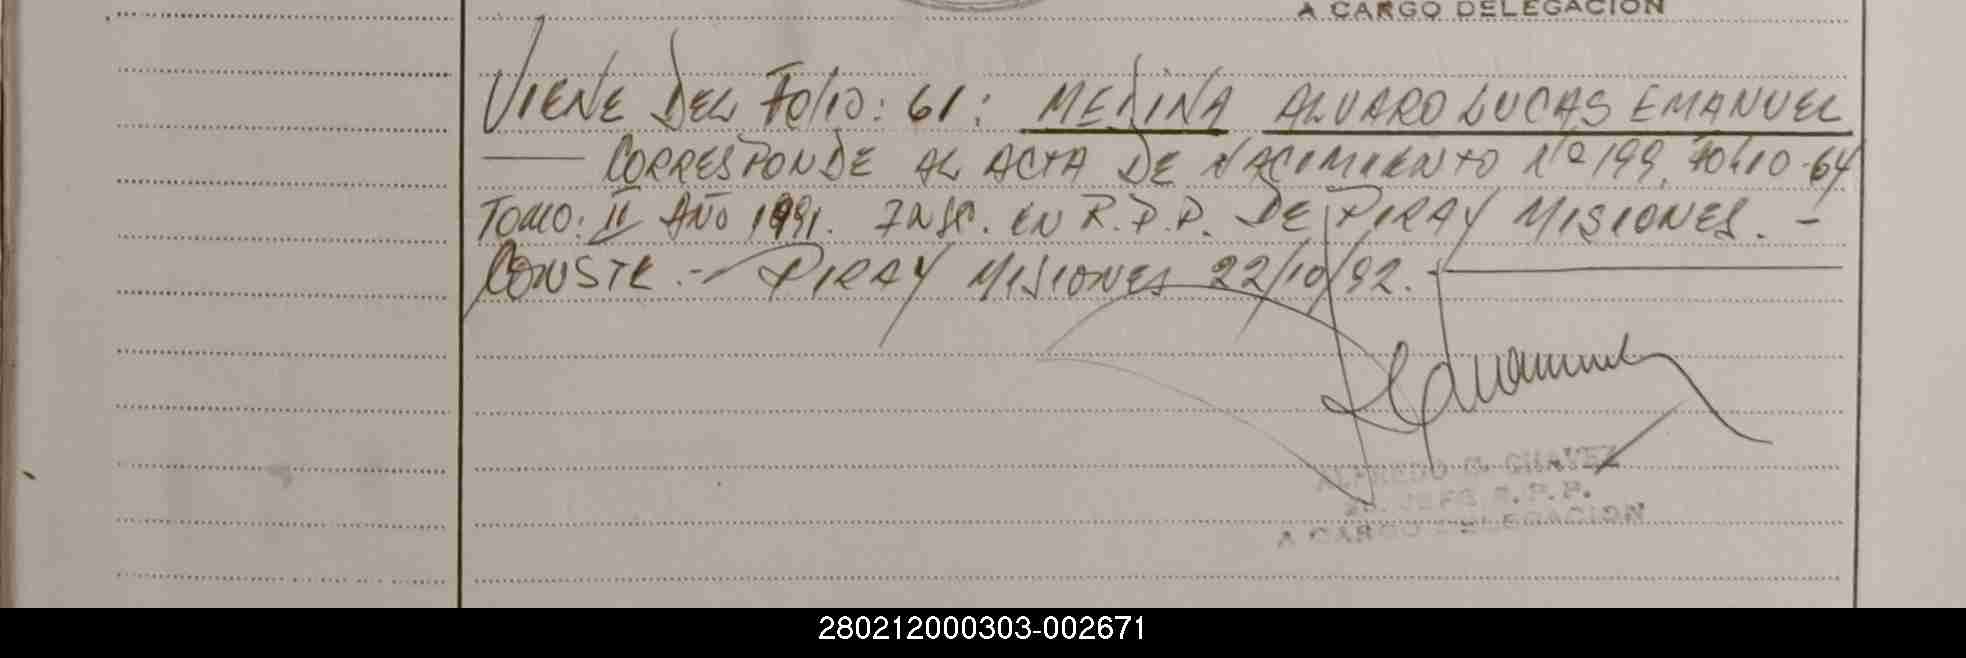 A CARGO DELEGACION
VIENE DEL FOLIO: 61: MEDINA ALVARO LUCAS EMANUEL
— CORRESPONDE AL ACTA DE NACIMIENTO Nº 199, FOLIO-64
TOMO: II AÑO 1991. INSC. EN R.P.P. DE PIRAY MISIONES. -
CONSTE.- PIRAY MISIONES 22/10/92.-
ALFREDO G. CHAVEZ
JEFE R.P.P.
A CARGO DELEGACION
280212000303-002671